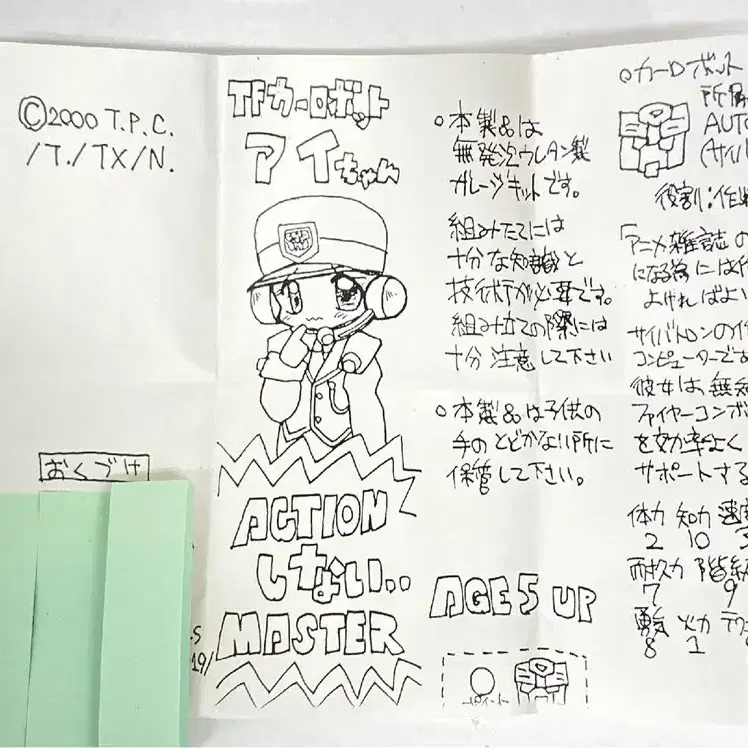 ©2000 T.P.C.
/T./TX/N.
おくづけ
TFカーロボット
アイちゃん
ACTION
しない..
MASTER
○本製品は
無発泡ウレタン製
ガレージキットです。
組みたてには
十分な知識と
技術が必要です。
組み立ての際には
十分注意して下さい
○本製品は子供の
手のとどかない所に
保管して下さい。
AGE 5 UP
ポイント
○カーロボット
所属
AUTO
(サイバ
役割:作戦
「アニメ雑誌の
になる為には
よければよい
サイバトロンの
コンピューターです
彼女は無知
ファイヤーコンボ
を効率よく
サポートする
体力 知力 速
2 10 3
耐久力 階級
7 9
勇気 火力 テク
8 1